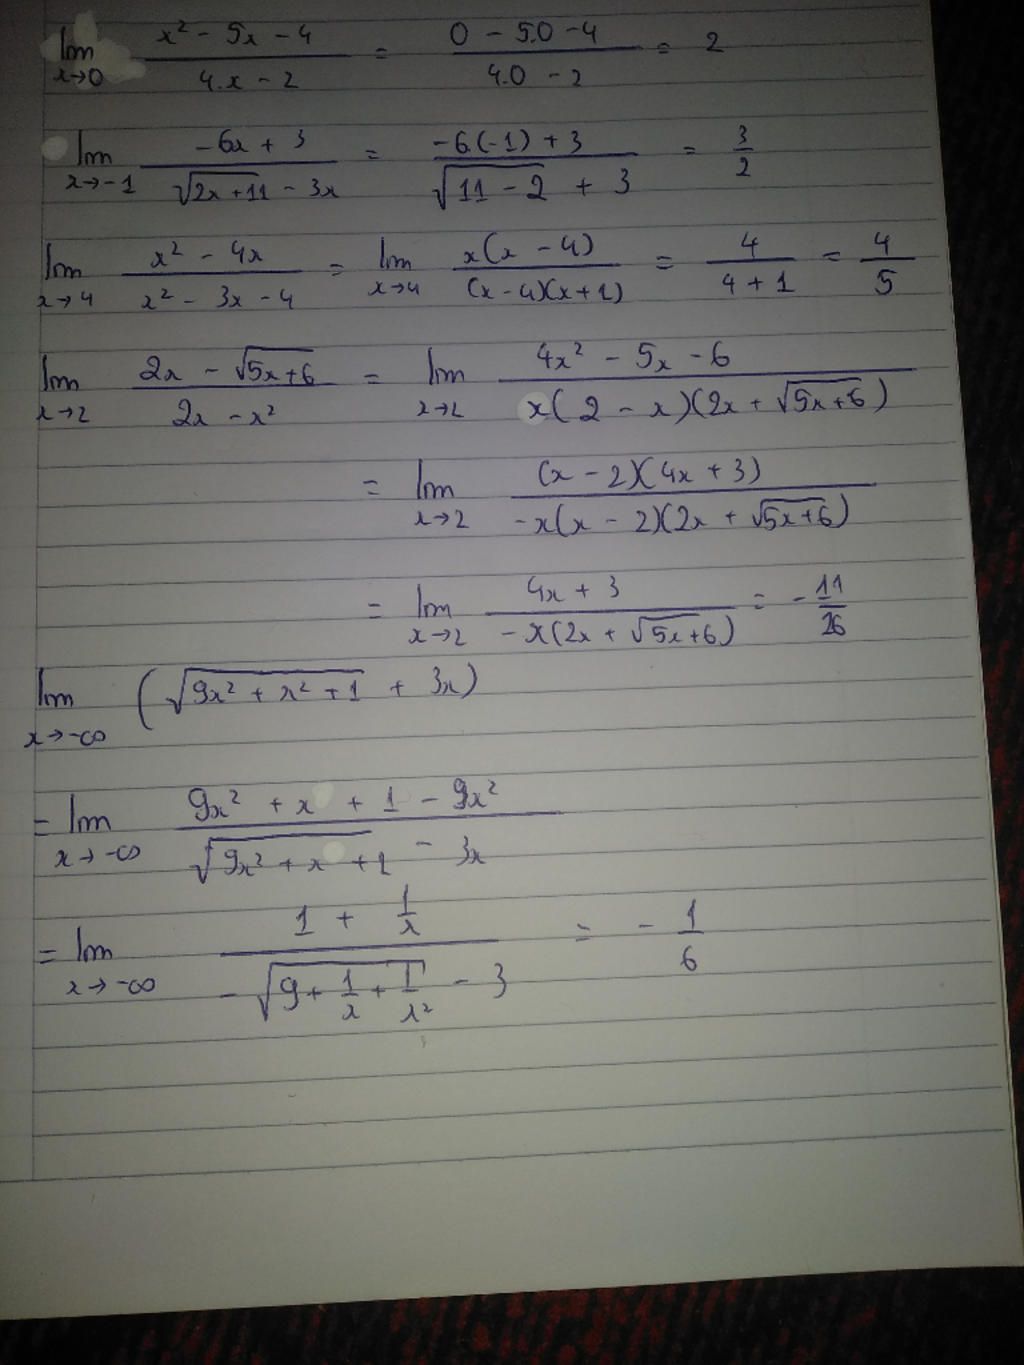 lim x→0 (x² - 5x - 4)/(4.x - 2) = (0 - 5.0 - 4)/(4.0 - 2) = 2
lim x→-1 (-6x + 3)/(√(2x+11) - 3x) = (-6(-1) + 3)/(√(11 - 2) + 3) = 3/2
lim x→4 (x² - 4x)/(x² - 3x - 4) = lim x→4 x(x - 4)/((x - 4)(x + 1)) = 4/(4 + 1) = 4/5
lim x→2 (2x - √(5x+6))/(2x - x²) = lim x→2 (4x² - 5x - 6)/(x(2 - x)(2x + √(5x+6)))
= lim x→2 ((x - 2)(4x + 3))/(-x(x - 2)(2x + √(5x+6)))
= lim x→2 (4x + 3)/(-x(2x + √(5x+6))) = -11/26
lim x→-∞ (√(9x² + x² + 1) + 3x)
= lim x→-∞ (9x² + x + 1 - 9x²)/(√(9x² + x + 1) - 3x)
= lim x→-∞ (1 + 1/x)/(-√(9 + 1/x + 1/x²) - 3) = -1/6